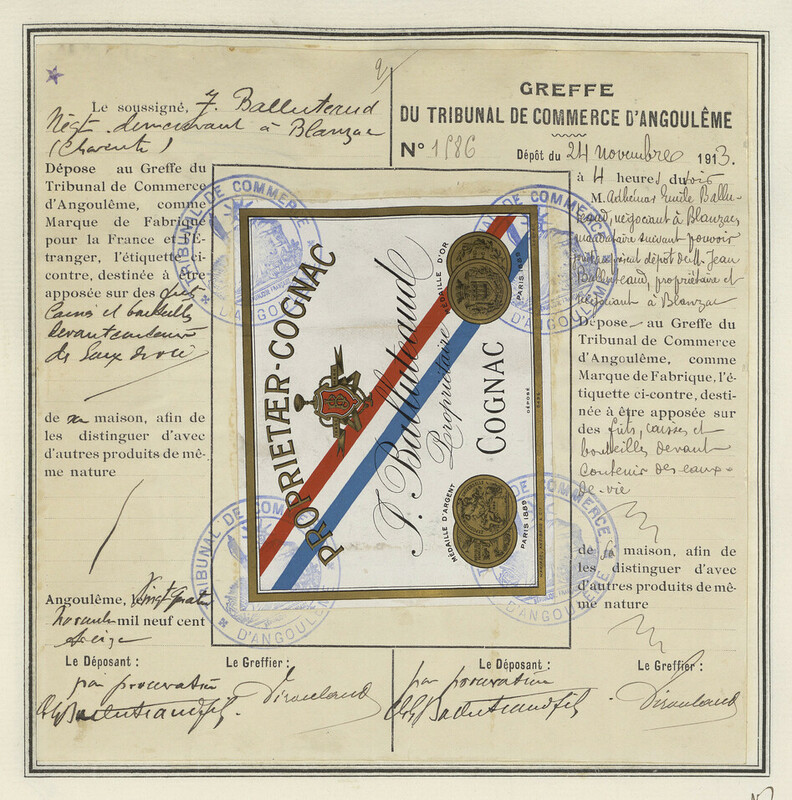 Le soussigné, J. Balluteaud
Négt. demeurant à Blanzac
(Charente)
Dépose au Greffe du
Tribunal de Commerce
d'Angoulême, comme
Marque de Fabrique
pour la France et l'É-
tranger, l'étiquette ci-
contre, destinée à être
apposée sur des fûts
Caisses et bouteilles
devant contenir
des Eaux de vie
de sa maison, afin de
les distinguer d'avec
d'autres produits de mê-
me nature
Angoulême, Vingt quatre
Novembre mil neuf cent
treize
Le Déposant :
Le Greffier :
par procuration
Balluteaud fils
GREFFE
DU TRIBUNAL DE COMMERCE D'ANGOULÊME
N° 1986
Dépôt du 24 novembre 1913.
à 4 heures du soir
M. Adhémar Emile Ballu-
teaud, négociant à Blanzac,
mandataire suivant pouvoir
dépôt de M. Jean
Balluteaud, propriétaire et
négociant à Blanzac
Dépose au Greffe du
Tribunal de Commerce
d'Angoulême, comme
Marque de Fabrique, l'é-
tiquette ci-contre, desti-
née à être apposée sur
des fûts, caisses et
bouteilles devant
contenir des eaux-
de-vie
de sa maison, afin de
les distinguer d'avec
d'autres produits de mê-
me nature
Le Déposant :
Le Greffier :
par procuration
Balluteaud fils
PROPRIETÆR-COGNAC
J. Balluteaud
Propriétaire
COGNAC
MÉDAILLE D'OR
PARIS 1889
MÉDAILLE D'ARGENT
PARIS 1889
DÉPOSÉ
TRIBUNAL DE COMMERCE
D'ANGOULÊME
TRIBUNAL DE COMMERCE
D'ANGOULÊME
TRIBUNAL DE COMMERCE
D'ANGOULÊME
TRIBUNAL DE COMMERCE
D'ANGOULÊME